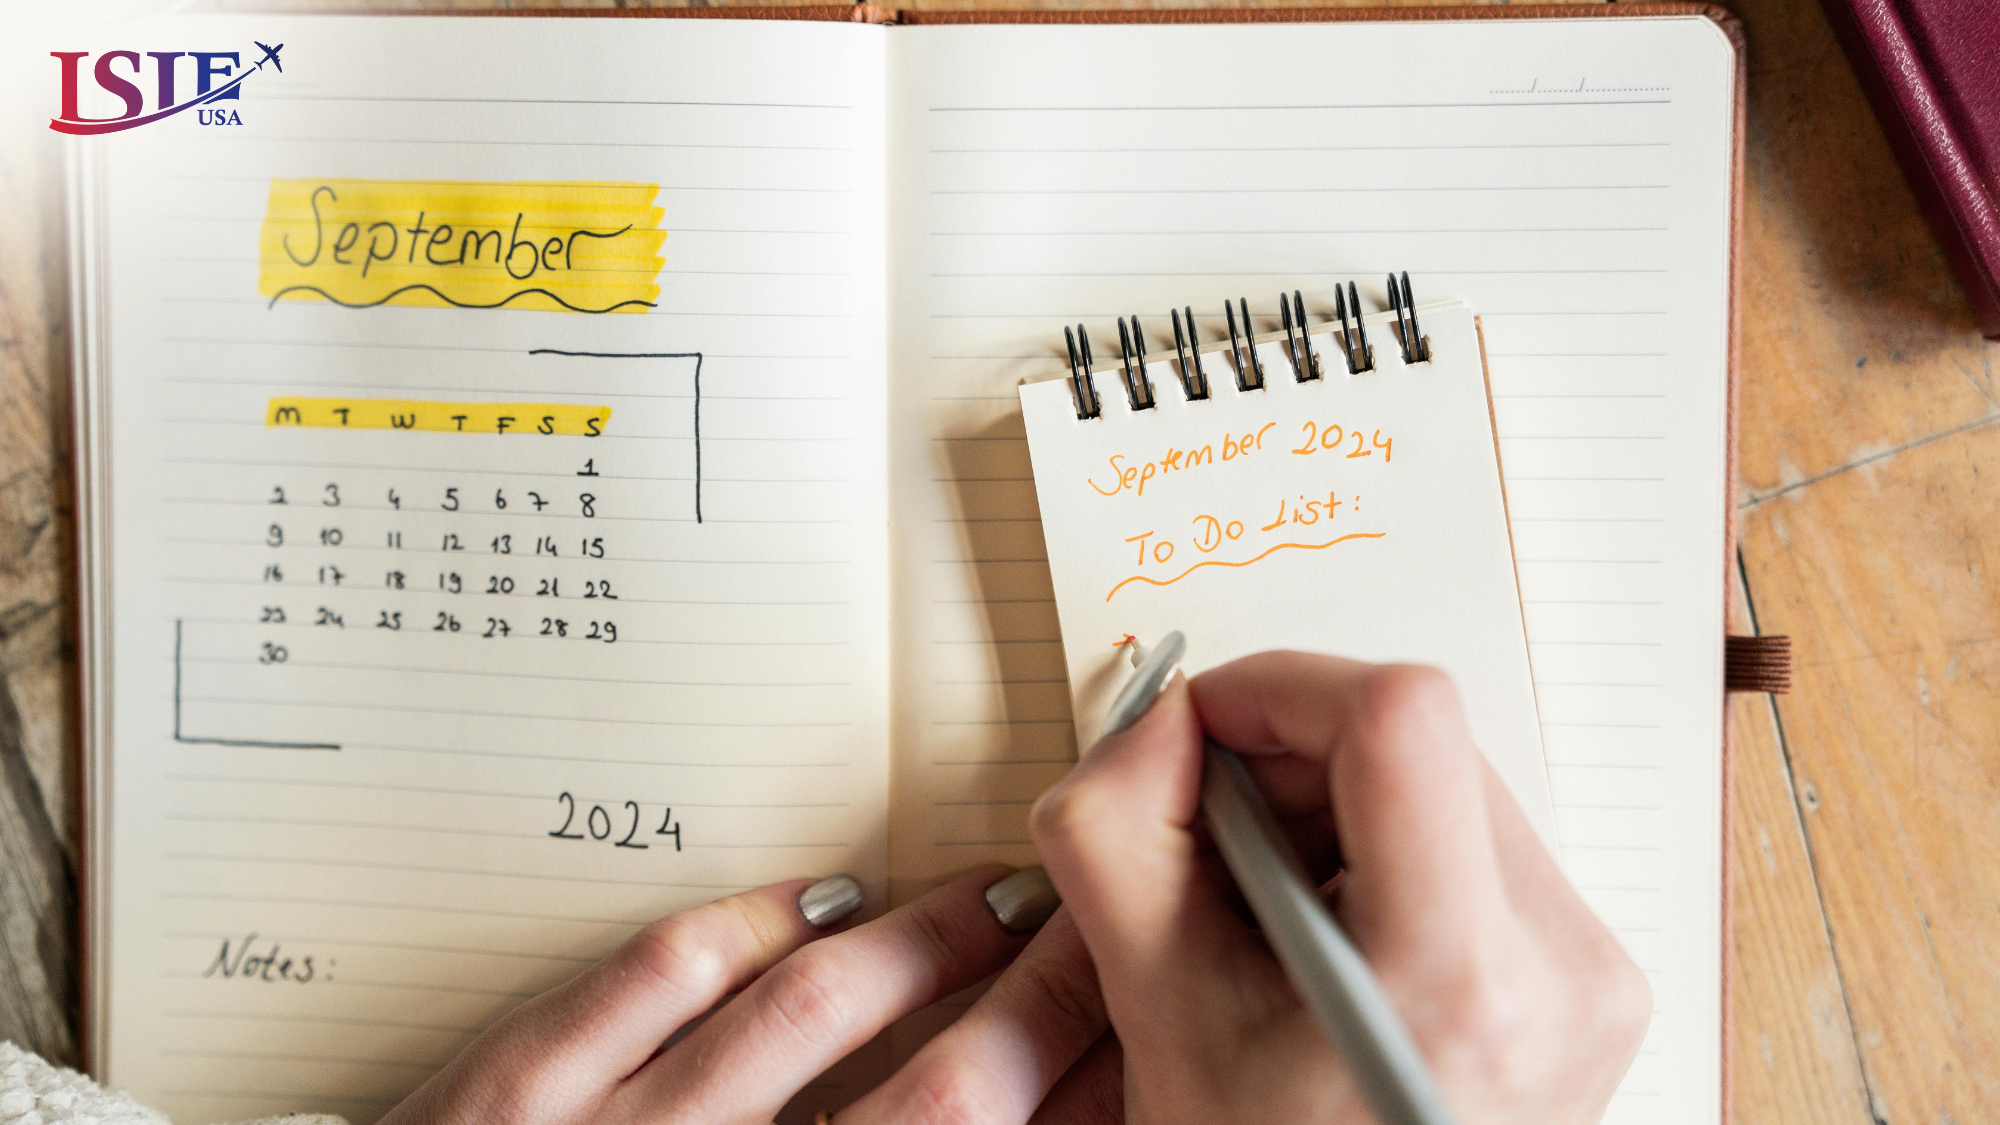 ISIE
USA
September
M T W T F S S
1
2 3 4 5 6 7 8
9 10 11 12 13 14 15
16 17 18 19 20 21 22
23 24 25 26 27 28 29
30
2024
Notes:
September 2024
To Do List: